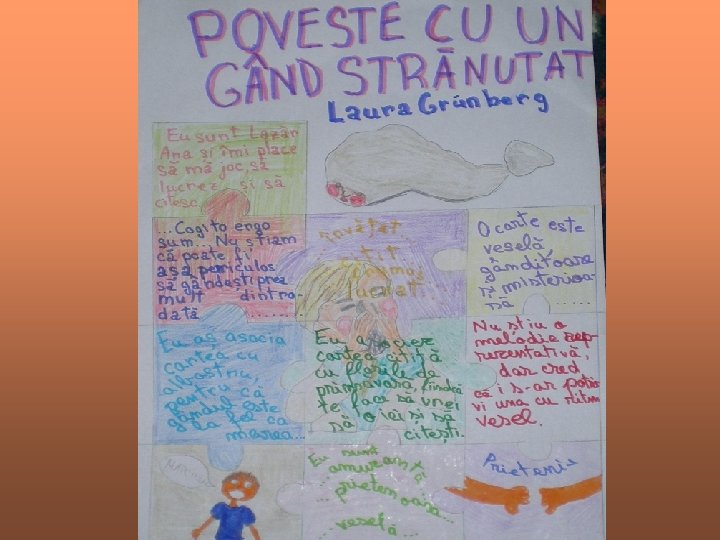 POVESTE CU UN
GÂND STRĂNUTAT
Laura Grünberg
Eu sunt Lazăr
Ana și îmi place
să mă joc, să
lucrez și să
citesc.
...Cogito ergo
sum... Nu știam
că poate fi
așa periculos
să gândești prea
mult dintro-
dată ........
învățat
O carte este
veselă,
gânditoare
și misterioa-
să ......
Eu aș asocia
cartea cu
albastru,
pentru că
gândul este
la fel ca
marea...
Eu asociez
cartea citită
cu florile de
primăvara, fiindcă
te face să vrei
să o iei și să
citești.
Nu știu o
melodie rep-
rezentativă,
dar cred
că i s-ar potri
vi una cu ritm
vesel.
Eu sunt
...amuzantă
...prietenoasă...
...veselă...
Prieteni-